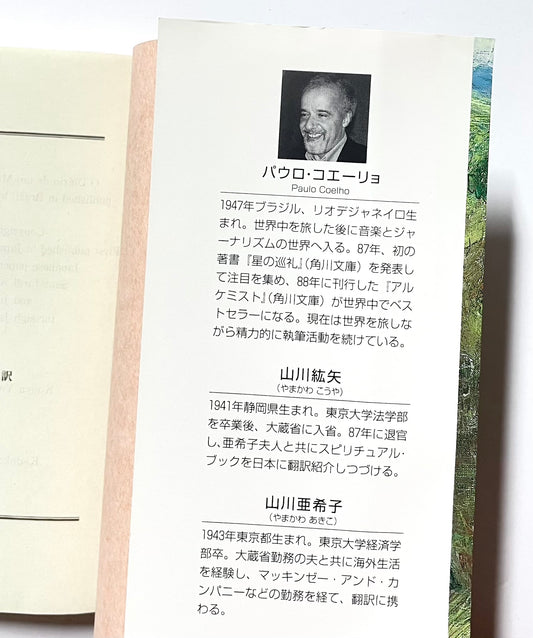 パウロ・コエーリョ
Paulo Coelho
1947年ブラジル、リオデジャネイロ生
まれ。世界中を旅した後に音楽とジャ
ーナリズムの世界へ入る。87年、初の
著書『星の巡礼』(角川文庫)を発表し
て注目を集め、88年に刊行した『アル
ケミスト』(角川文庫)が世界中でベス
トセラーになる。現在は世界を旅しな
がら精力的に執筆活動を続けている。
山川紘矢
(やまかわ こうや)
1941年静岡県生まれ。東京大学法学部
を卒業後、大蔵省に入省。87年に退官
し、亜希子夫人と共にスピリチュアル・
ブックを日本に翻訳紹介しつづける。
山川亜希子
(やまかわ あきこ)
1943年東京都生まれ。東京大学経済学
部卒。大蔵省勤務の夫と共に海外生活
を経験し、マッキンゼー・アンド・カ
ンパニーなどの勤務を経て、翻訳に携
わる。
訳